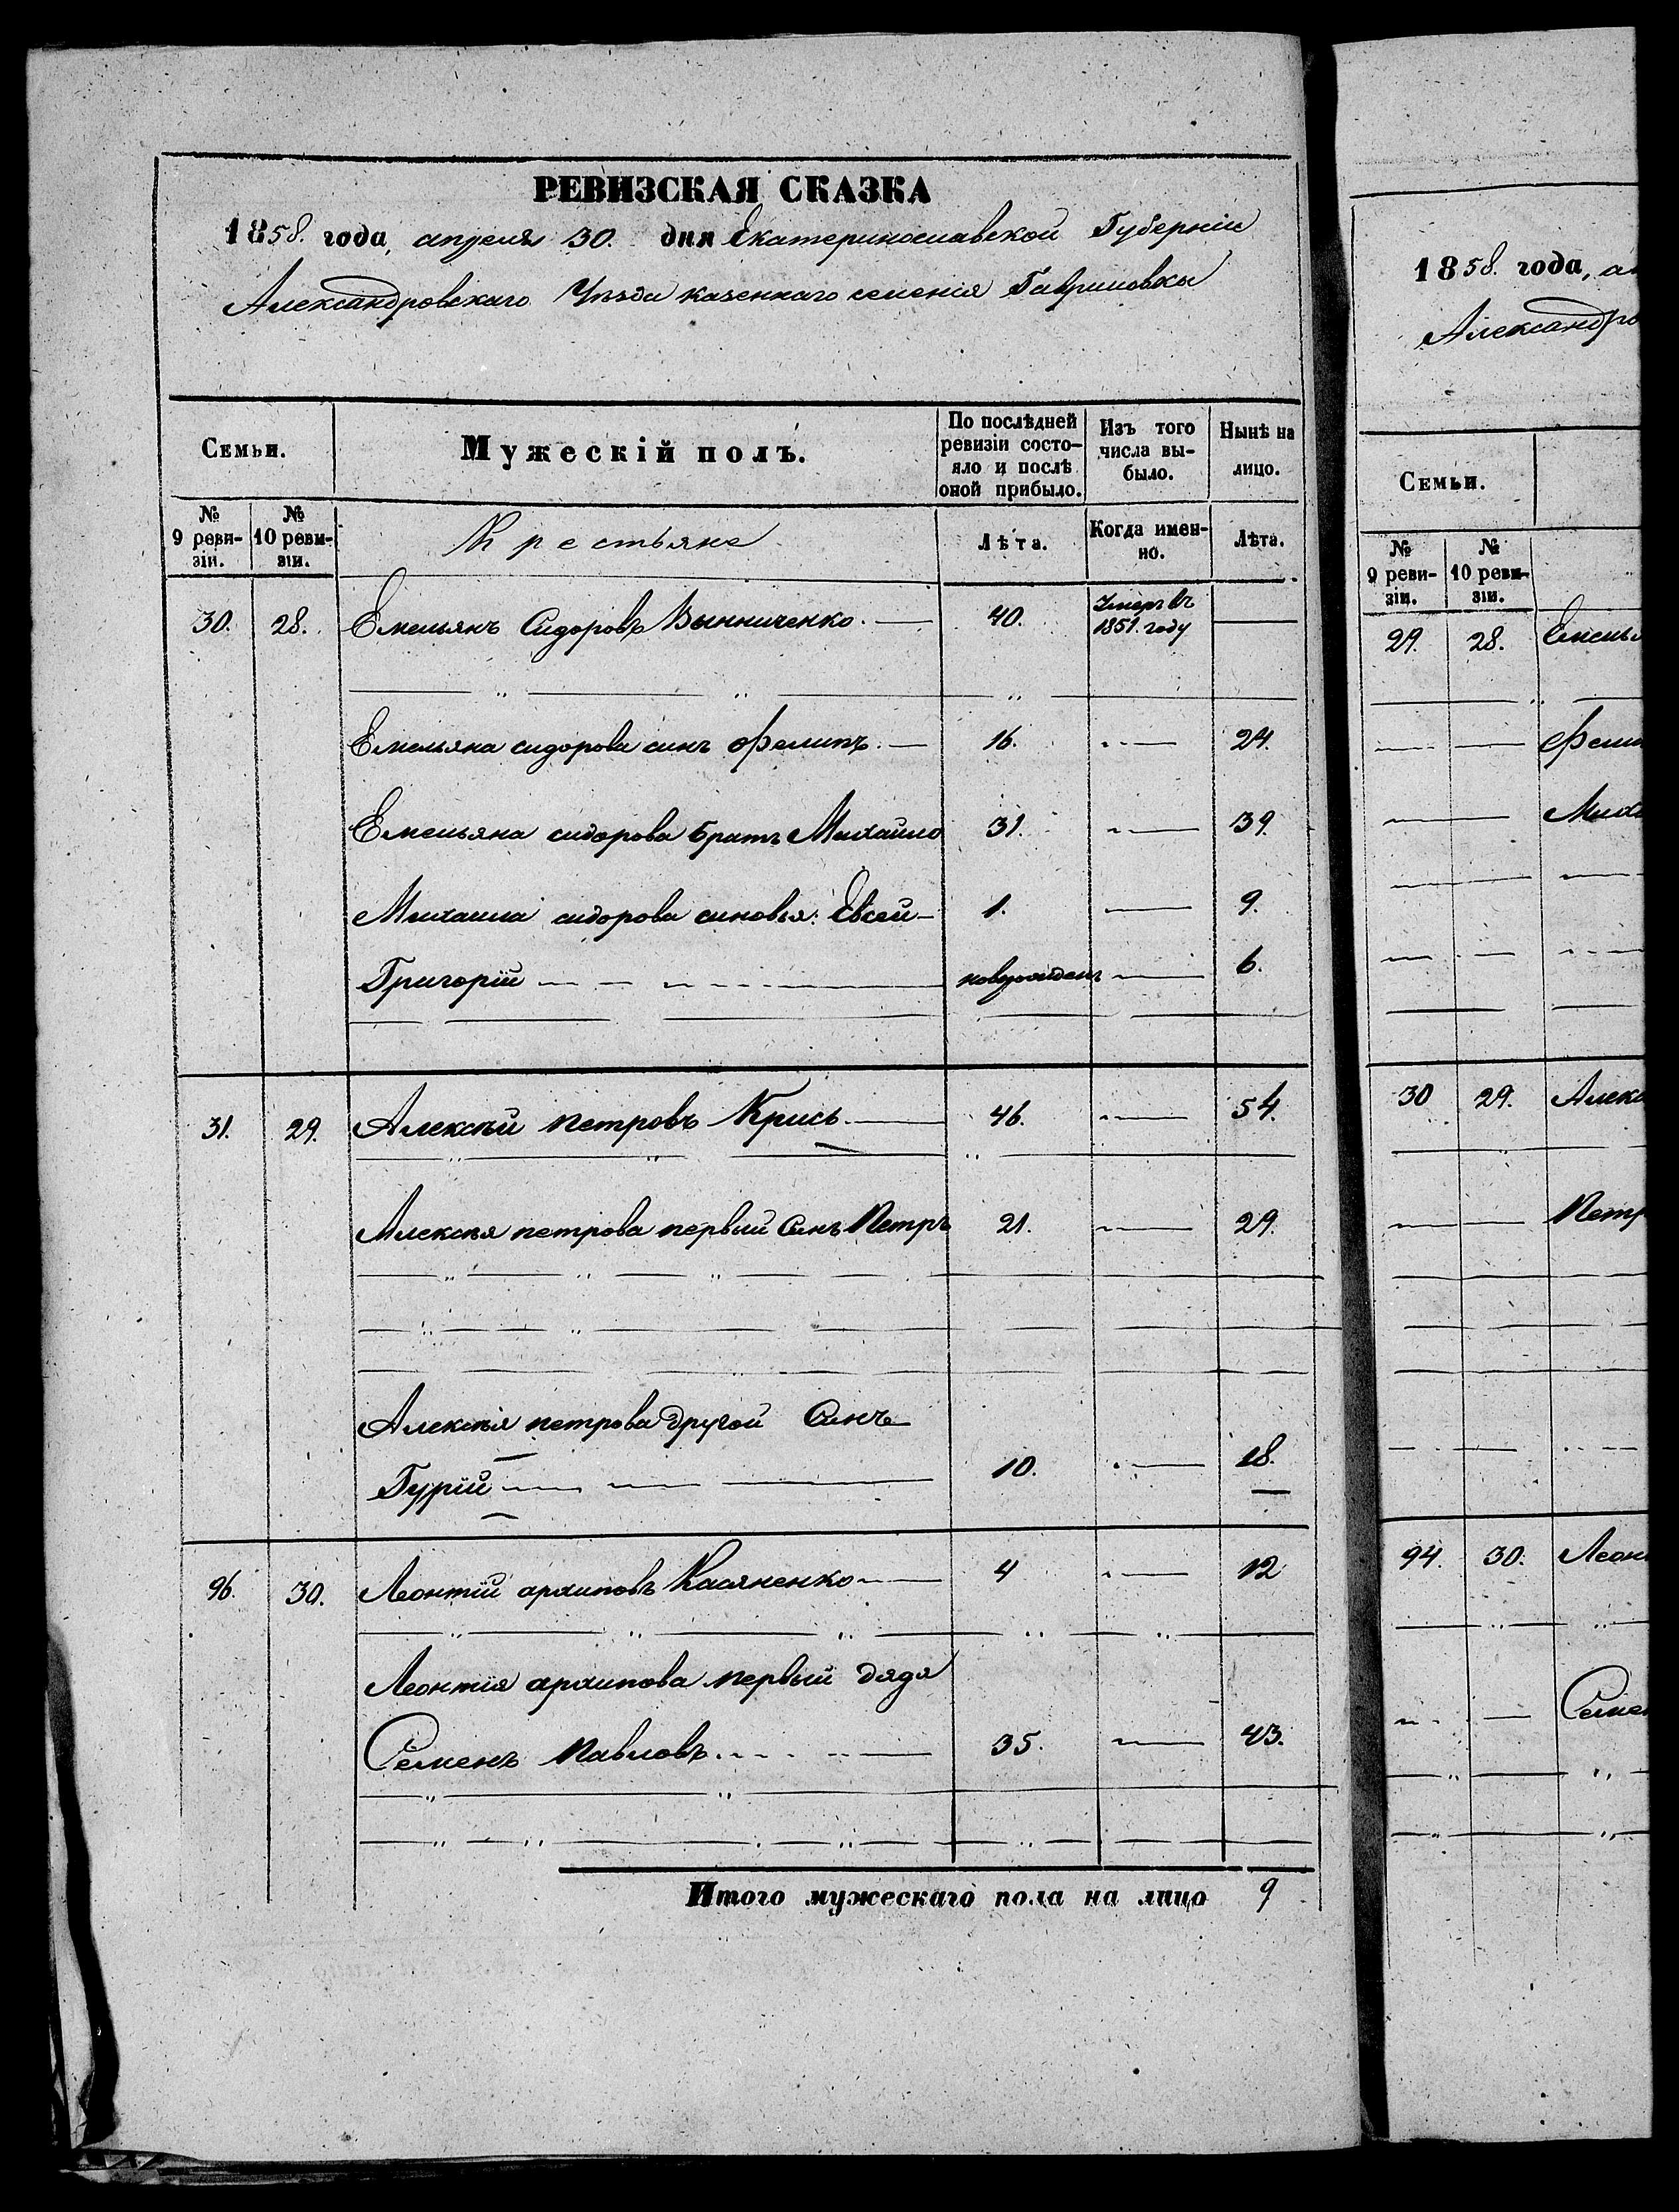 РЕВИЗСКАЯ СКАЗКА
1858. года, апреля 30. дня Екатеринославской Губерніи
Александровскаго Уѣзда казеннаго селенія Гавриловки
Семьи.
Мужескій полъ.
По послѣдней ревизіи состо-яло и послѣ оной прибыло.
Изъ того числа вы-было.
Нынѣ на лицо.
№ 9 реви-зіи.
№ 10 реви-зіи.
Крестьяне
Лѣта.
Когда имен-но.
Лѣта.
30. 28. Емельянъ Сидоровъ Вынниченко. 40. Умеръ въ 1851. году
Емельяна сидорова синъ Филипъ. 16. 24.
Емельяна сидорова братъ Михайло 31. 39.
Михаила сидорова синовья: Евсей 1. 9.
Григорій новорожденъ 6.
31. 29. Алексѣй петровъ Крись 46. 54.
Алексѣя петрова первый Синъ Петръ 21. 29.
Алексѣя петрова другой Синъ
Гурій 10. 18.
96. 30. Леонтій архиповъ Касяненко 4 12
Леонтія архипова первый дядя
Семенъ Павловъ. 35. 43.
Итого мужескаго пола на лицо 9
1858. года, а
Александро
Семьи.
№ 9 реви-зіи.
№ 10 реви-зіи.
29. 28. Емелья
Фили
Миха
30 29. Алекс
Петр
94. 30. Леон
Семен